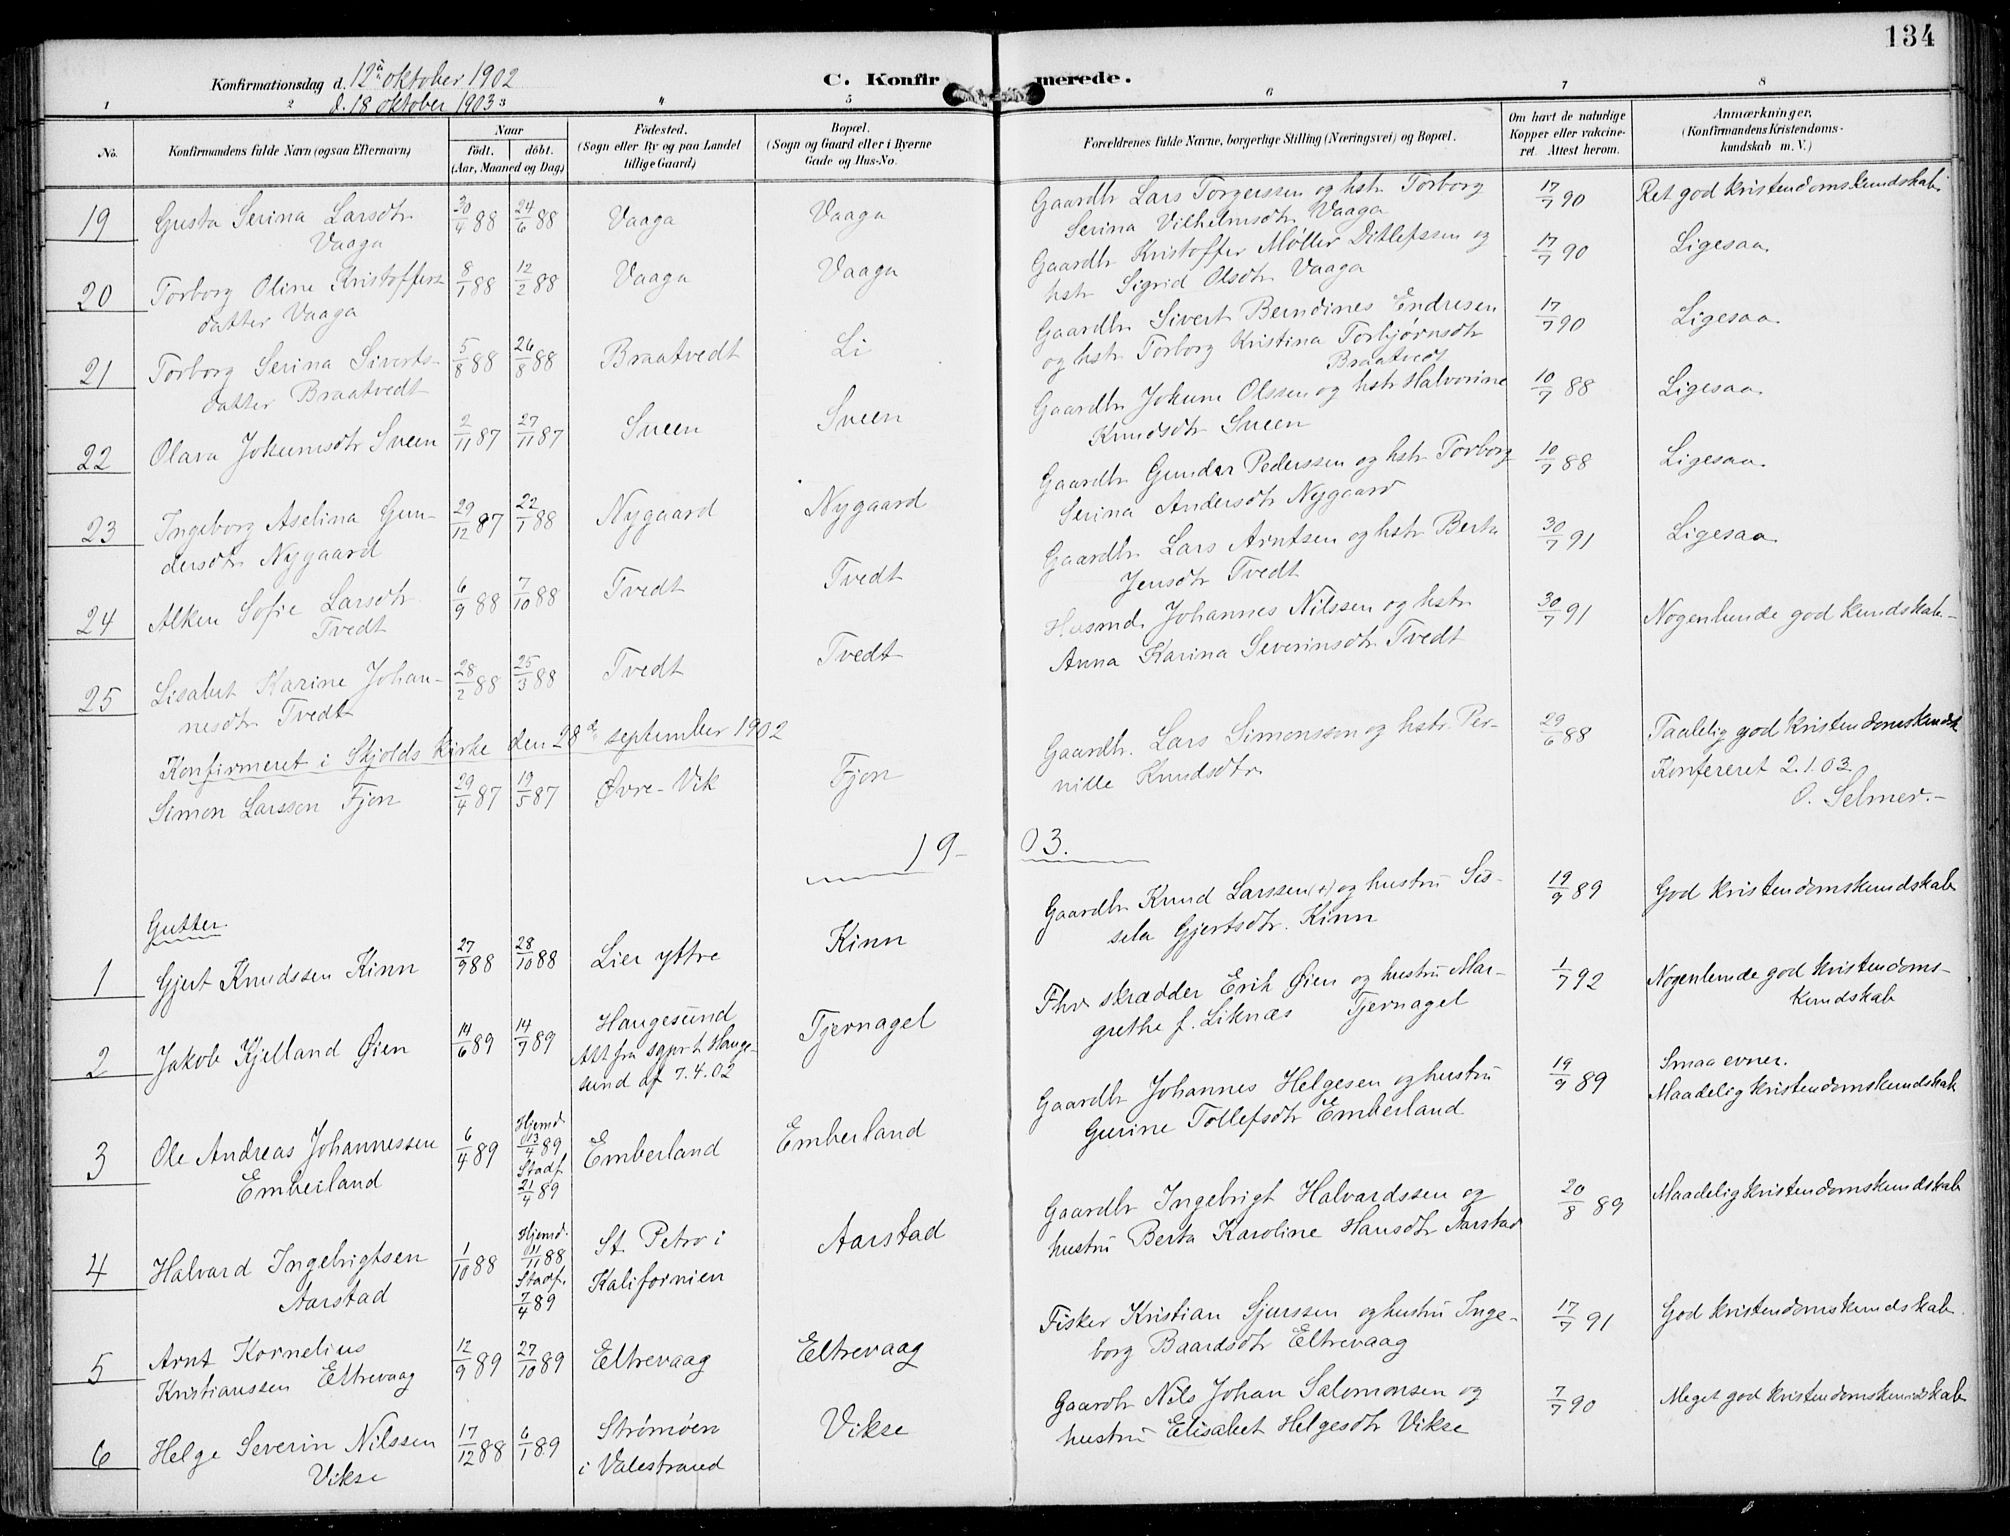 134
Konfirmationsdag d. 12te oktober 1902
d. 18 oktober 1903
C. Konfirmerede.
1 2 3 4 5 6 7 8
No.
Konfirmandens fulde Navn (ogsaa Efternavn)
Naar
Født. døbt.
(Aar, Maaned og Dag)
Fødested.
(Sogn eller By og paa Landet
tillige Gaard)
Bopæl.
(Sogn og Gaard eller i Byerne
Gade og Hus-No.
Forældrenes fulde Navne, borgerlige Stilling (Næringsvei) og Bopæl.
Om havt de naturlige
Kopper eller vakcine-
ret. Attest herom.
Anmærkninger.
(Konfirmandens Kristendoms-
kundskab m. V.)
19 Gusta Serina Larsdtr Vaaga 30/4 88 24/6 88 Vaaga Vaaga
Gaardbr Lars Torgerssen og hstr Torborg
Serina Vilhelmsdtr Vaaga
17/7 90 Ret god kristendomskundskab.
20 Torborg Oline Kristoffers-
datter Vaaga 8/1 88 12/2 88 Vaaga Vaaga
Gaardbr Kristoffer Møller Ditlefssen og
hstr Sigrid Olsdtr Vaaga
17/7 90 Ligesaa.
21 Torborg Serina Siverts-
datter Braatvedt 5/8 88 26/8 88 Braatvedt Li
Gaardbr Sivert Berndines Endresen
og hstr Torborg Kristina Torbjørnsdtr
Braatvedt
17/7 90 Ligesaa.
22 Olava Jokumsdtr Sveen 2/11 87 27/11 87 Sveen Sveen
Gaardbr Jokum Olssen og hstr Halvorine
Knudsdtr Sveen
10/7 88 Ligesaa.
23 Ingeborg Aselina Gun-
dersdtr Nygaard 29/12 87 22/1 88 Nygaard Nygaard
Gaardbr Gunder Pederssen og hstr Torborg
Serina Andersdtr Nygaard
10/7 88 Ligesaa.
24 Alken Sofie Larsdtr
Tvedt 6/9 88 7/10 88 Tvedt Tvedt
Gaardbr Lars Arntsen og hstr Berta
Jensdtr Tvedt
30/7 91 Ligesaa
25 Lisabet Karine Johan-
nesdtr Tvedt 28/2 88 25/3 88 Tvedt Tvedt
Husmd. Johannes Nilssen og hstr
Anna Karina Severinsdtr Tvedt
30/7 91 Nogenlunde god kundskab.-
Konfirmeret i Skjolds kirke den 28de september 1902
Simon Larsson Fjon 29/4 87 19/5 87 Øvre-Vik Fjon
Gaardbr. Lars Simonsson og hstr Per-
nille Knudsdtr
29/6 88 Taalelig god kristendomskundsk
Konfereret 2.1.03
O. Selmer.-
19-03.
Gutter.
1 Gjert Knudssen Kinn 27/9 88 28/10 88 Lier yttre Kinn
Gaardbr Knud Larssen (e) og hustru Sis-
sela Gjertsdtr. Kinn
19/9 89 God kristendomskundskab
2 Jakob Kjelland Øien 14/6 89 14/7 89 Haugesund
Att fra sgpr. t. Hauge-
sund af 7.4.02
Tjernagel
Fhv skrædder Erik Øien og hustru Mar-
grethe f. Liknæs Tjernagel
1/7 92 Nogenlunde god kristendoms-
kundskab
3 Ole Andreas Johannessen
Emberland 6/4 89 Hjemd. 13/4 89 Stadf. 21/4 89 Emberland Emberland
Gaardbr Johannes Helgesen og hustru
Gurine Tollefsdtr Emberland
19/9 89 Smaa evner.
Maadelig kristendomskundskab
4 Halvard Ingebrigtsen
Aarstad 1/10 88 Hjemd. 11/11 88 Stadf. 7/4 89 St. Petro i
Kalifornien Aarstad
Gaardbr Ingebrigt Halvardssen og
hustru Berta Karoline Hansdtr Aarstad
20/8 89 Maadelig kristendomskundskab
5 Arnt Kornelius
Kristianssen Eltrevaag 12/9 89 27/10 89 Eltrevaag Eltrevaag
Fisker Kristian Sjurssen og hustru Inge-
borg Baardsdtr Eltrevaag
17/7 91 God kristendomskundskab.
6 Helge Severin Nilssen
Vikse 17/12 88 6/1 89 Strømøen
i Valestrand Vikse
Gaardbr Nils Johan Salomonsen og
hustru Elisabet Helgesdtr Vikse
7/7 90 Meget god kristendomskundskab